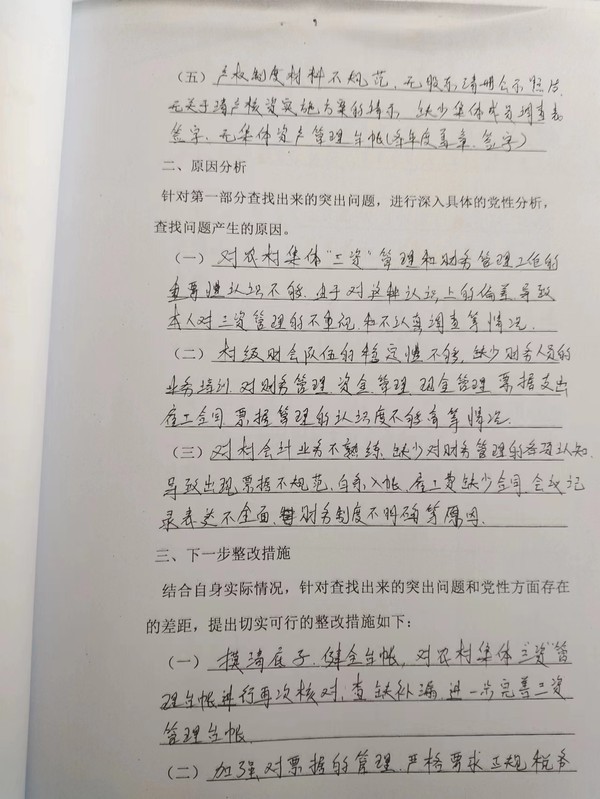 （五）产权制度材料不规范，无股东清册公示照片，
无关于清产核资实施方案的请示 缺少集体成员调查表
签字，无集体资产管理台帐（各年度盖章、签字）
二、原因分析
针对第一部分查找出来的突出问题，进行深入具体的党性分析，
查找问题产生的原因。
（一）对农村集体“三资”管理和财务管理工作的
重要性认识不够，由于对这种认识上的偏差导致
本人对三资管理的不重视，和不认真调查等情况．
（二）村级财会队伍的稳定性不够，缺少财务人员的
业务培训．对财务管理、资金管理、现金管理、票据支出
雇工合同、票据管理的认识度不够高等情况．
（三）对村会计业务不熟练、缺少对财务管理的各项认知．
导致出现票据不规范，白条入帐，雇工费缺少合同，会议记
录表述不全面，财务制度不明确等原因．
三、下一步整改措施
结合自身实际情况，针对查找出来的突出问题和党性方面存在
的差距，提出切实可行的整改措施如下：
（一）摸清底子．健全台帐，对农村集体“三资”管
理台帐进行再次核对，查缺补漏，进一步完善三资
管理台帐．
（二）加强对票据的管理．严格要求正规税务